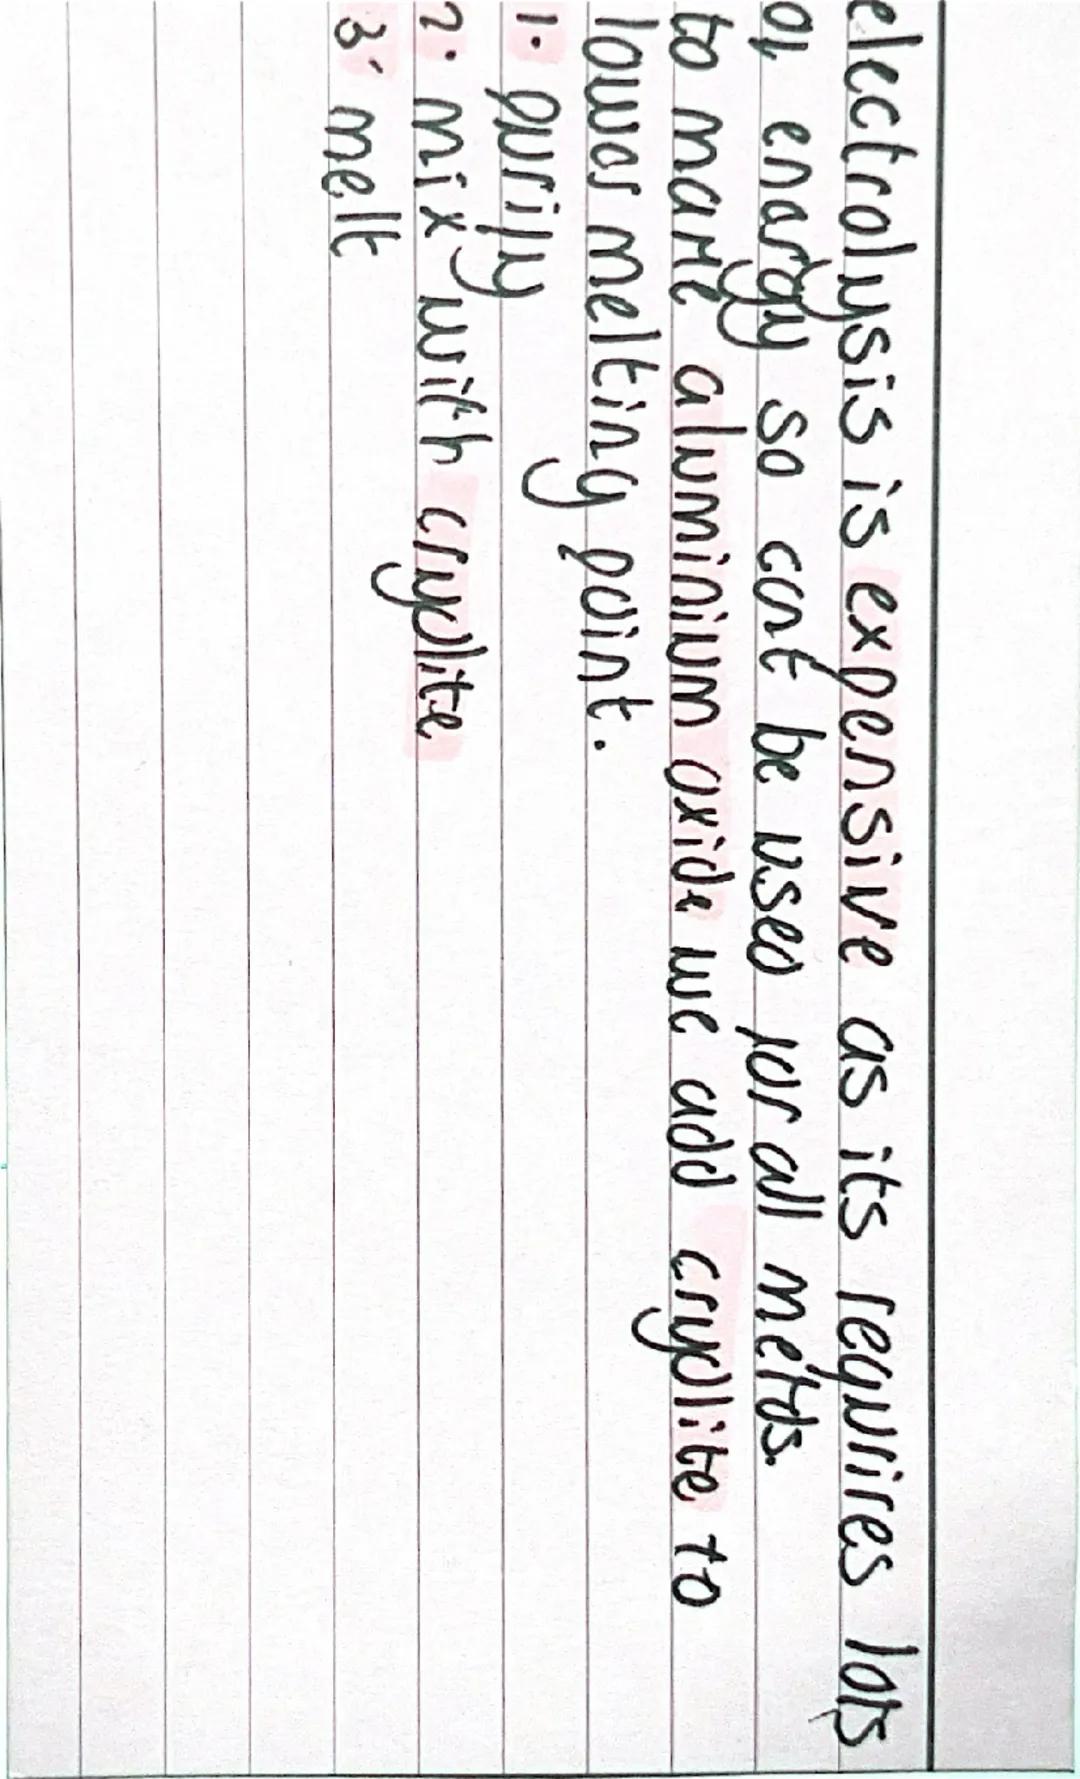 electrolysis is expensive as its requires lots
of energy so cant be used for all metals.
to make aluminium oxide we add cryolite to
lower melting point.
1. purify
2. mix with cryolite
3. melt